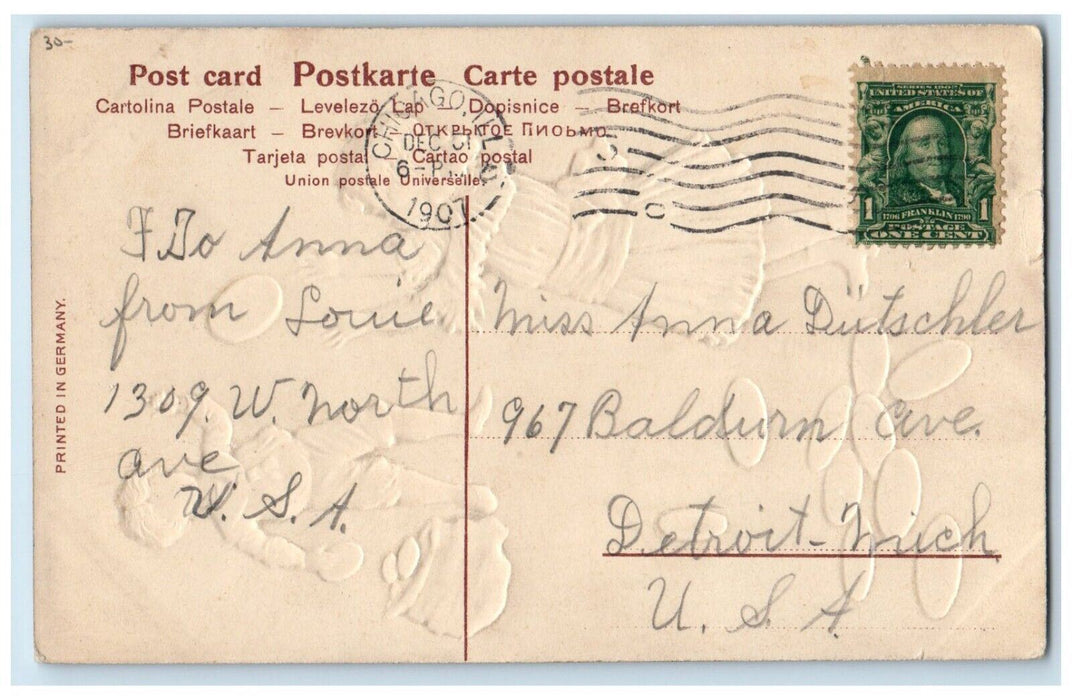 30-
Post card Postkarte Carte postale
Cartolina Postale – Levelező Lap – Dopisnice – Brefkort
Briefkaart – Brevkort – ОТКРЫТОЕ ПИСЬМО
Tarjeta postal – Cartao postal
Union postale Universelle.
CHICAGO, ILL.
DEC
6-P
1907
SERIES 1902
UNITED STATES OF
AMERICA
1706 FRANKLIN 1790
1 POSTAGE 1
ONE CENT
To Anna
from Louie
1309. W. North
ave
U. S. A.
Miss Anna Dutschler
967 Baldwin ave.
Detroit-Mich
U. S. A
PRINTED IN GERMANY.